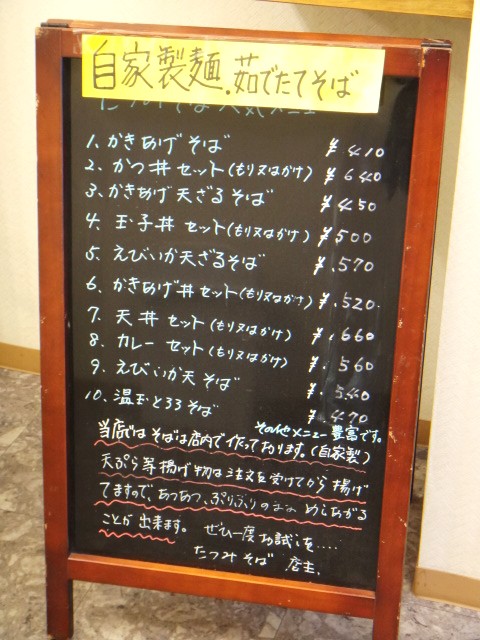 自家製麺.茹でたてそば
1. かきあげそば ¥410
2. かつ丼セット(もりヌはかけ) ¥640
3. かきあげ天ざるそば ¥450
4. 玉子丼セット(もりヌはかけ) ¥500
5. えびいか天ざるそば ¥.570
6. かきあげ丼セット(もりヌはかけ) ¥.520.
7. 天丼セット(もりヌはかけ) ¥.660
8. カレーセット(もりヌはかけ) ¥.560
9. えびいか天そば ¥.540
10. 温玉とろろそば ¥470
その他メニュー豊富です。
当店ではそばは店内で作っております。(自家製)
天ぷら等揚げ物は注文を受けてから揚げ
てますので、あつあつ、ぷりぷりのまま めしあがる
ことが出来ます。 ぜひ一度お試しを....
たつみそば 店主、